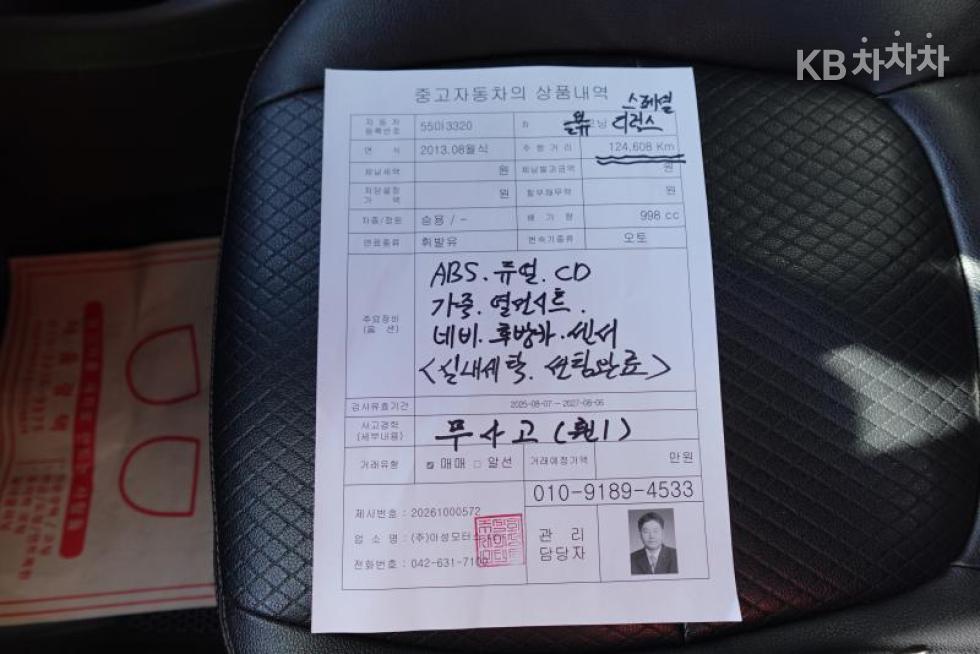 KB차차차
중고자동차의 상품내역
스페셜
자동차 등록번호 55마3320 차 모닝 디럭스
연식 2013.08월식 주행거리 124,608 Km
체납세액 원 체납범과금액 원
저당설정 가액 원 할부채무액 원
차종/정원 승용 / - 배기량 998 cc
연료종류 휘발유 변속기종류 오토
ABS. 듀얼. CD
가죽. 열선시트.
주요장비 (옵션)
네비. 후방카. 센서
<실내세탁. 썬팅완료>
검사유효기간 2025-08-07 ~ 2027-08-06
사고경력 (세부내용) 무사고 (휀1)
거래유형 매매 알선 거래예정가액 만원
010-9189-4533
제시번호 : 20261000572
업소명 : (주)아성모터스
관리 담당자
전화번호 : 042-631-710